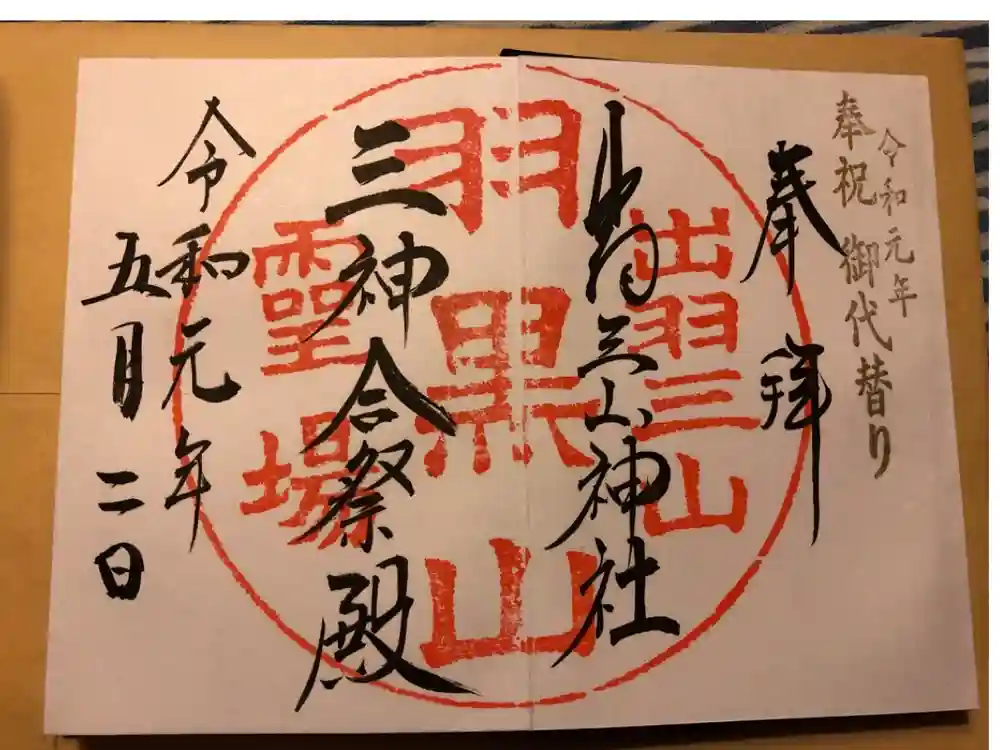 令和元年
奉祝 御代替り
奉拝
出羽三山神社
三神合祭殿
令和元年
五月二日
出羽三山
羽黒山
霊場